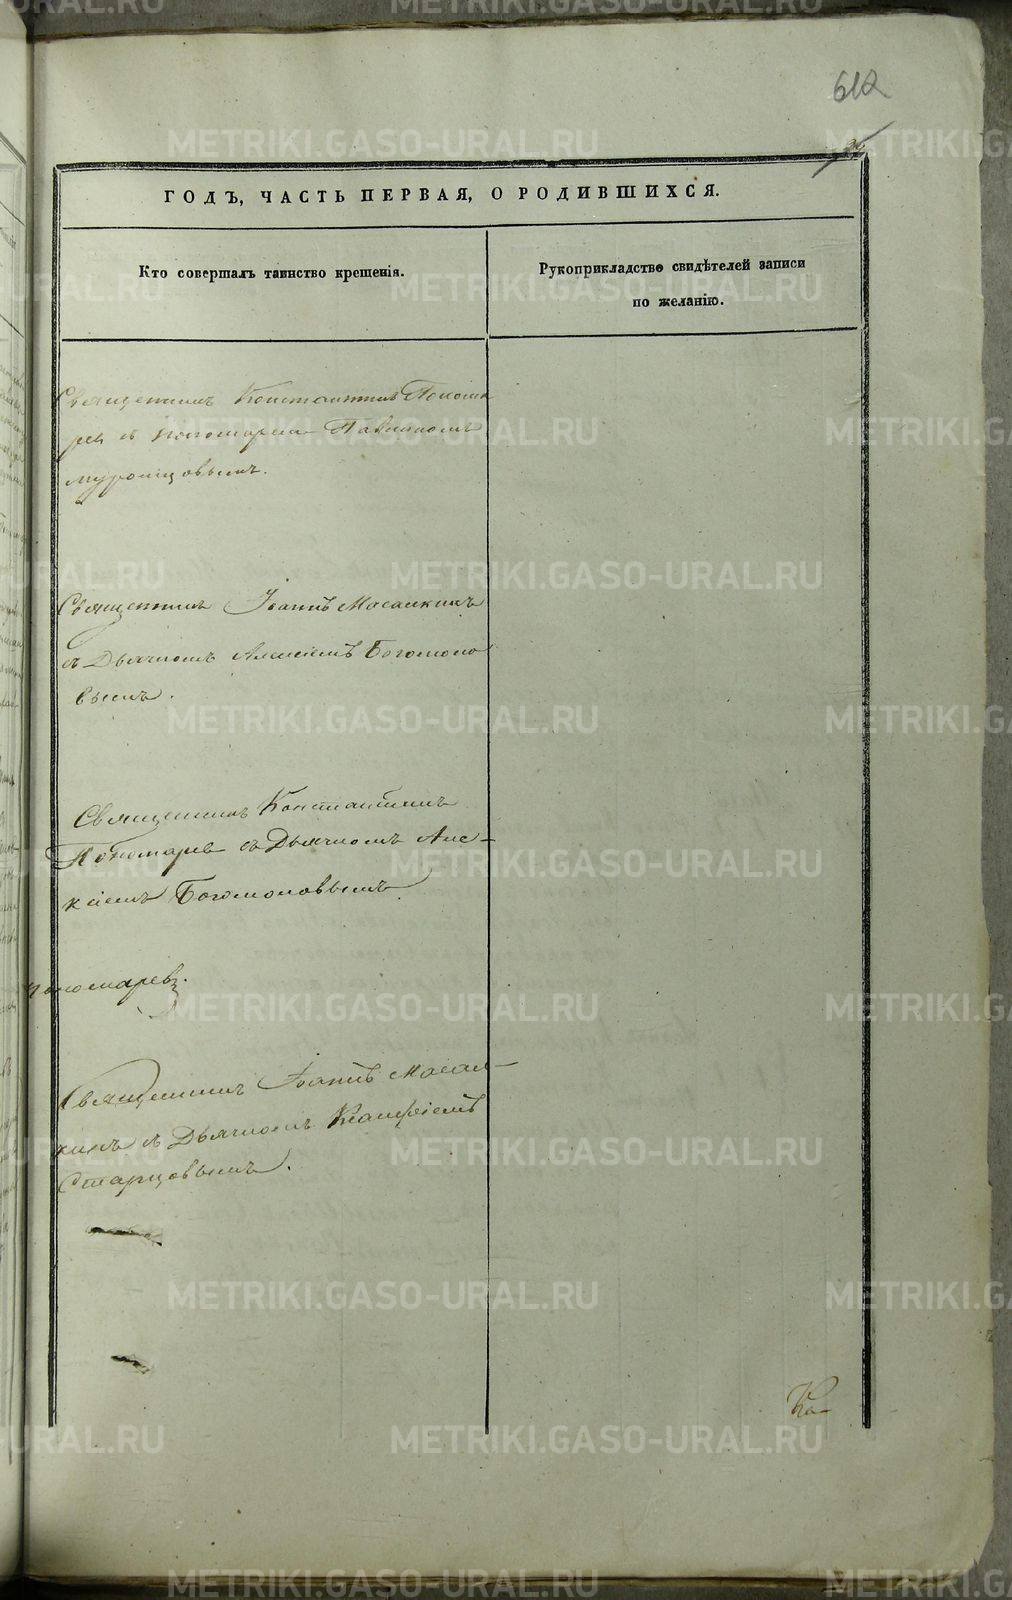 612
ГОДЪ, ЧАСТЬ ПЕРВАЯ, О РОДИВШИХСЯ.
Кто совершалъ таинство крещенія.
Рукоприкладство свидѣтелей записи
по желанію.
Священникъ Константинъ Понома
ревъ с пономаремъ Павликомъ
муромцовымъ.
Священникъ Іоаннъ Масалкинъ
съ Дьячкомъ Алексіемъ Богомоло
вымъ.
Священникъ Константинъ
Пономаревъ съ Дьячкомъ Але-
ксіемъ Богомоловымъ
Пономаревъ.
Священникъ Іоаннъ Масал-
кинъ съ Дьячкомъ
Старцовымъ.
Ко-
METRIKI.GASO-URAL.RU